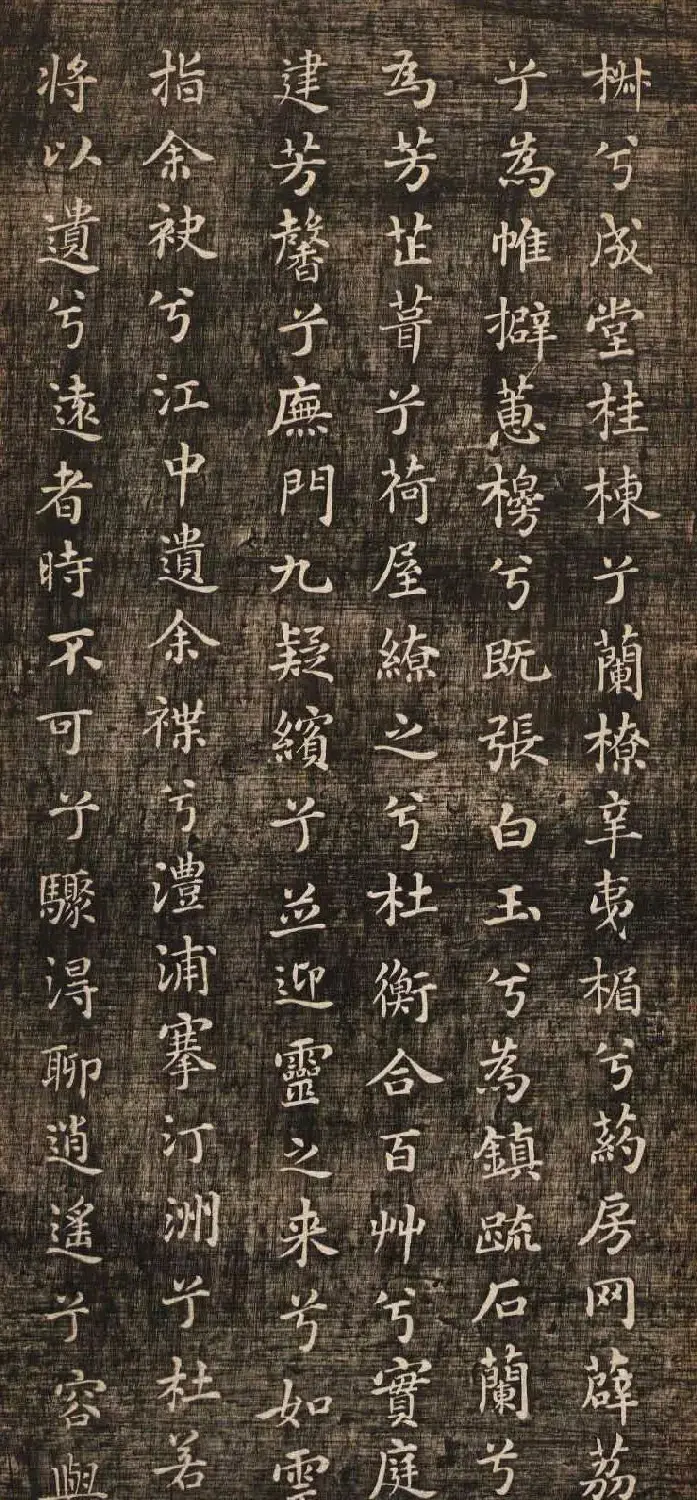 椒兮成堂桂棟兮蘭橑辛夷楣兮葯房网薜荔
兮為帷擗蕙櫋兮既張白玉兮為鎮疏石蘭兮
為芳芷葺兮荷屋繚之兮杜衡合百艸兮實庭
建芳馨兮廡門九疑繽兮並迎靈之来兮如雲
指余袂兮江中遺余褋兮澧浦搴汀洲兮杜若
將以遺兮遠者時不可兮驟淂聊逍遙兮容與